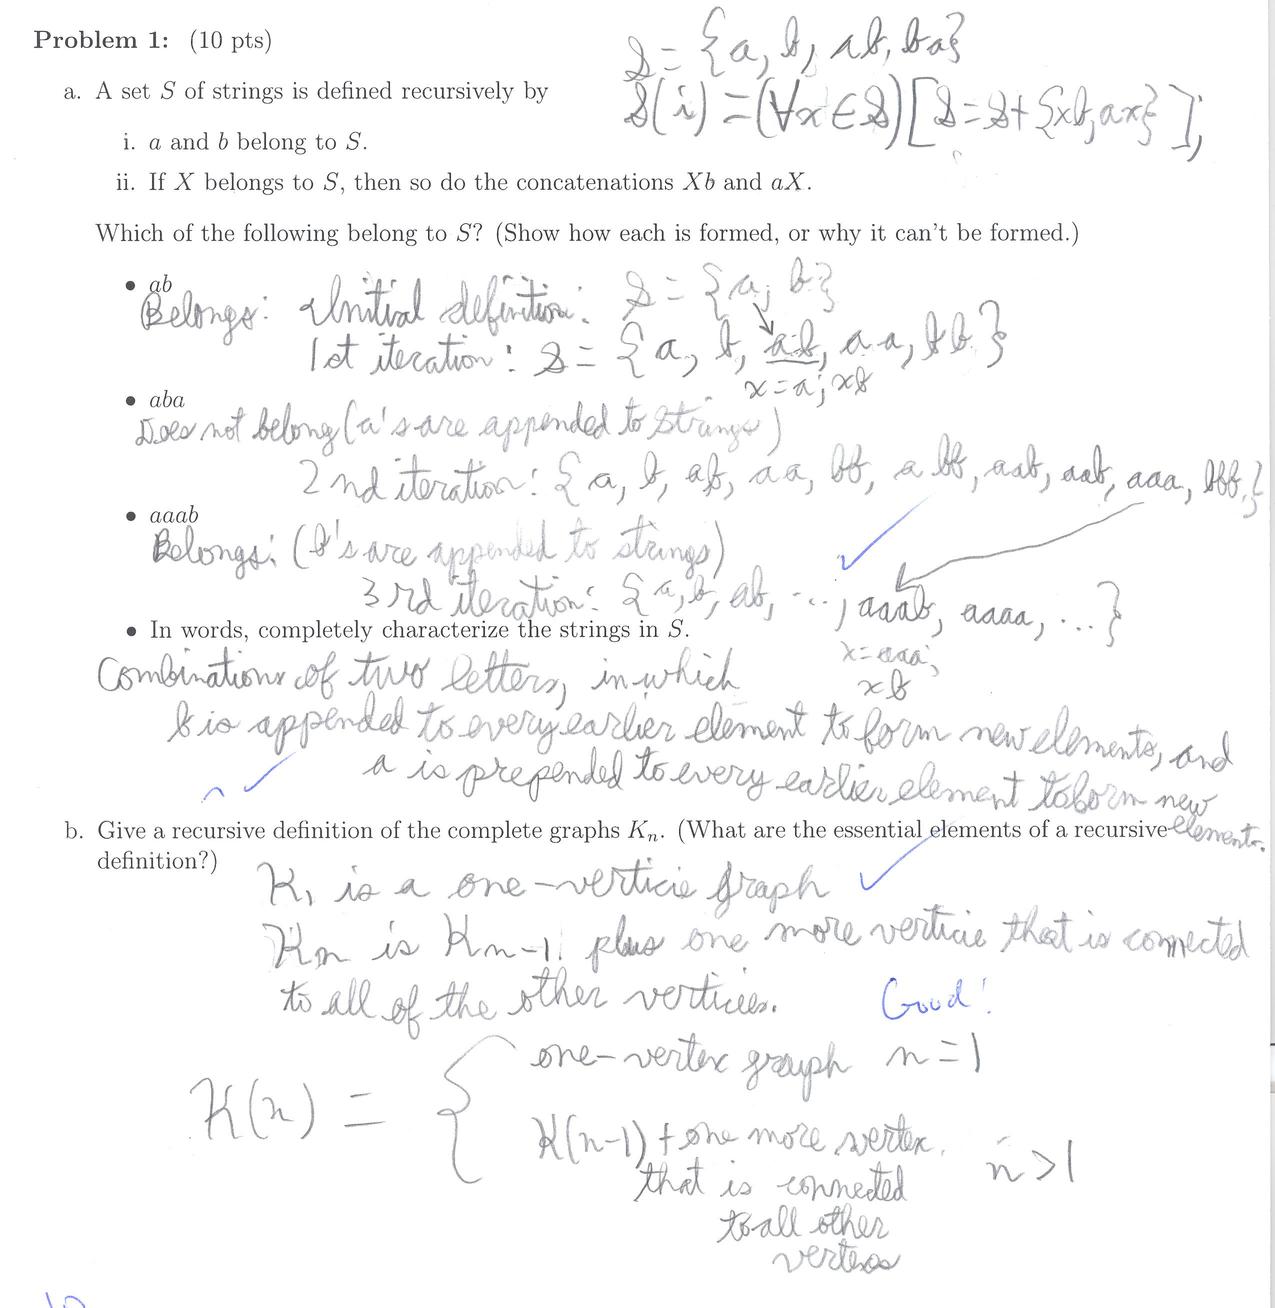 Problem 1: (10 pts)
S = {a, b, ab, ba}
S(i) = (∀x ∈ S)[S = S + {xb, ax}];
a. A set S of strings is defined recursively by
i. a and b belong to S.
ii. If X belongs to S, then so do the concatenations Xb and aX.
Which of the following belong to S? (Show how each is formed, or why it can't be formed.)
• ab
Belongs: Initial definition: S = {a, b}
1st iteration: S = {a, b, ab, aa, bb}
x=a; xb
• aba
Does not belong (a's are appended to strings)
2nd iteration: {a, b, ab, aa, bb, abb, aab, aab, aaa, bbb,}
• aaab
Belongs: (b's are appended to strings)
3rd iteration: {a, b, ab, ..., aaab, aaaa, ...}
• In words, completely characterize the strings in S.
x=aaa;
xb
Combinations of two letters, in which
b is appended to every earlier element to form new elements, and
a is prepended to every earlier element to form new
elements.
b. Give a recursive definition of the complete graphs Kₙ. (What are the essential elements of a recursive
definition?)
K₁ is a one-verticie graph
Kₙ is Kₙ₋₁ plus one more verticie that is connected
to all of the other verticies.
Good!
K(n) = {
one-vertex graph n = 1
K(n-1) + one more vertex
that is connected
to all other
n > 1